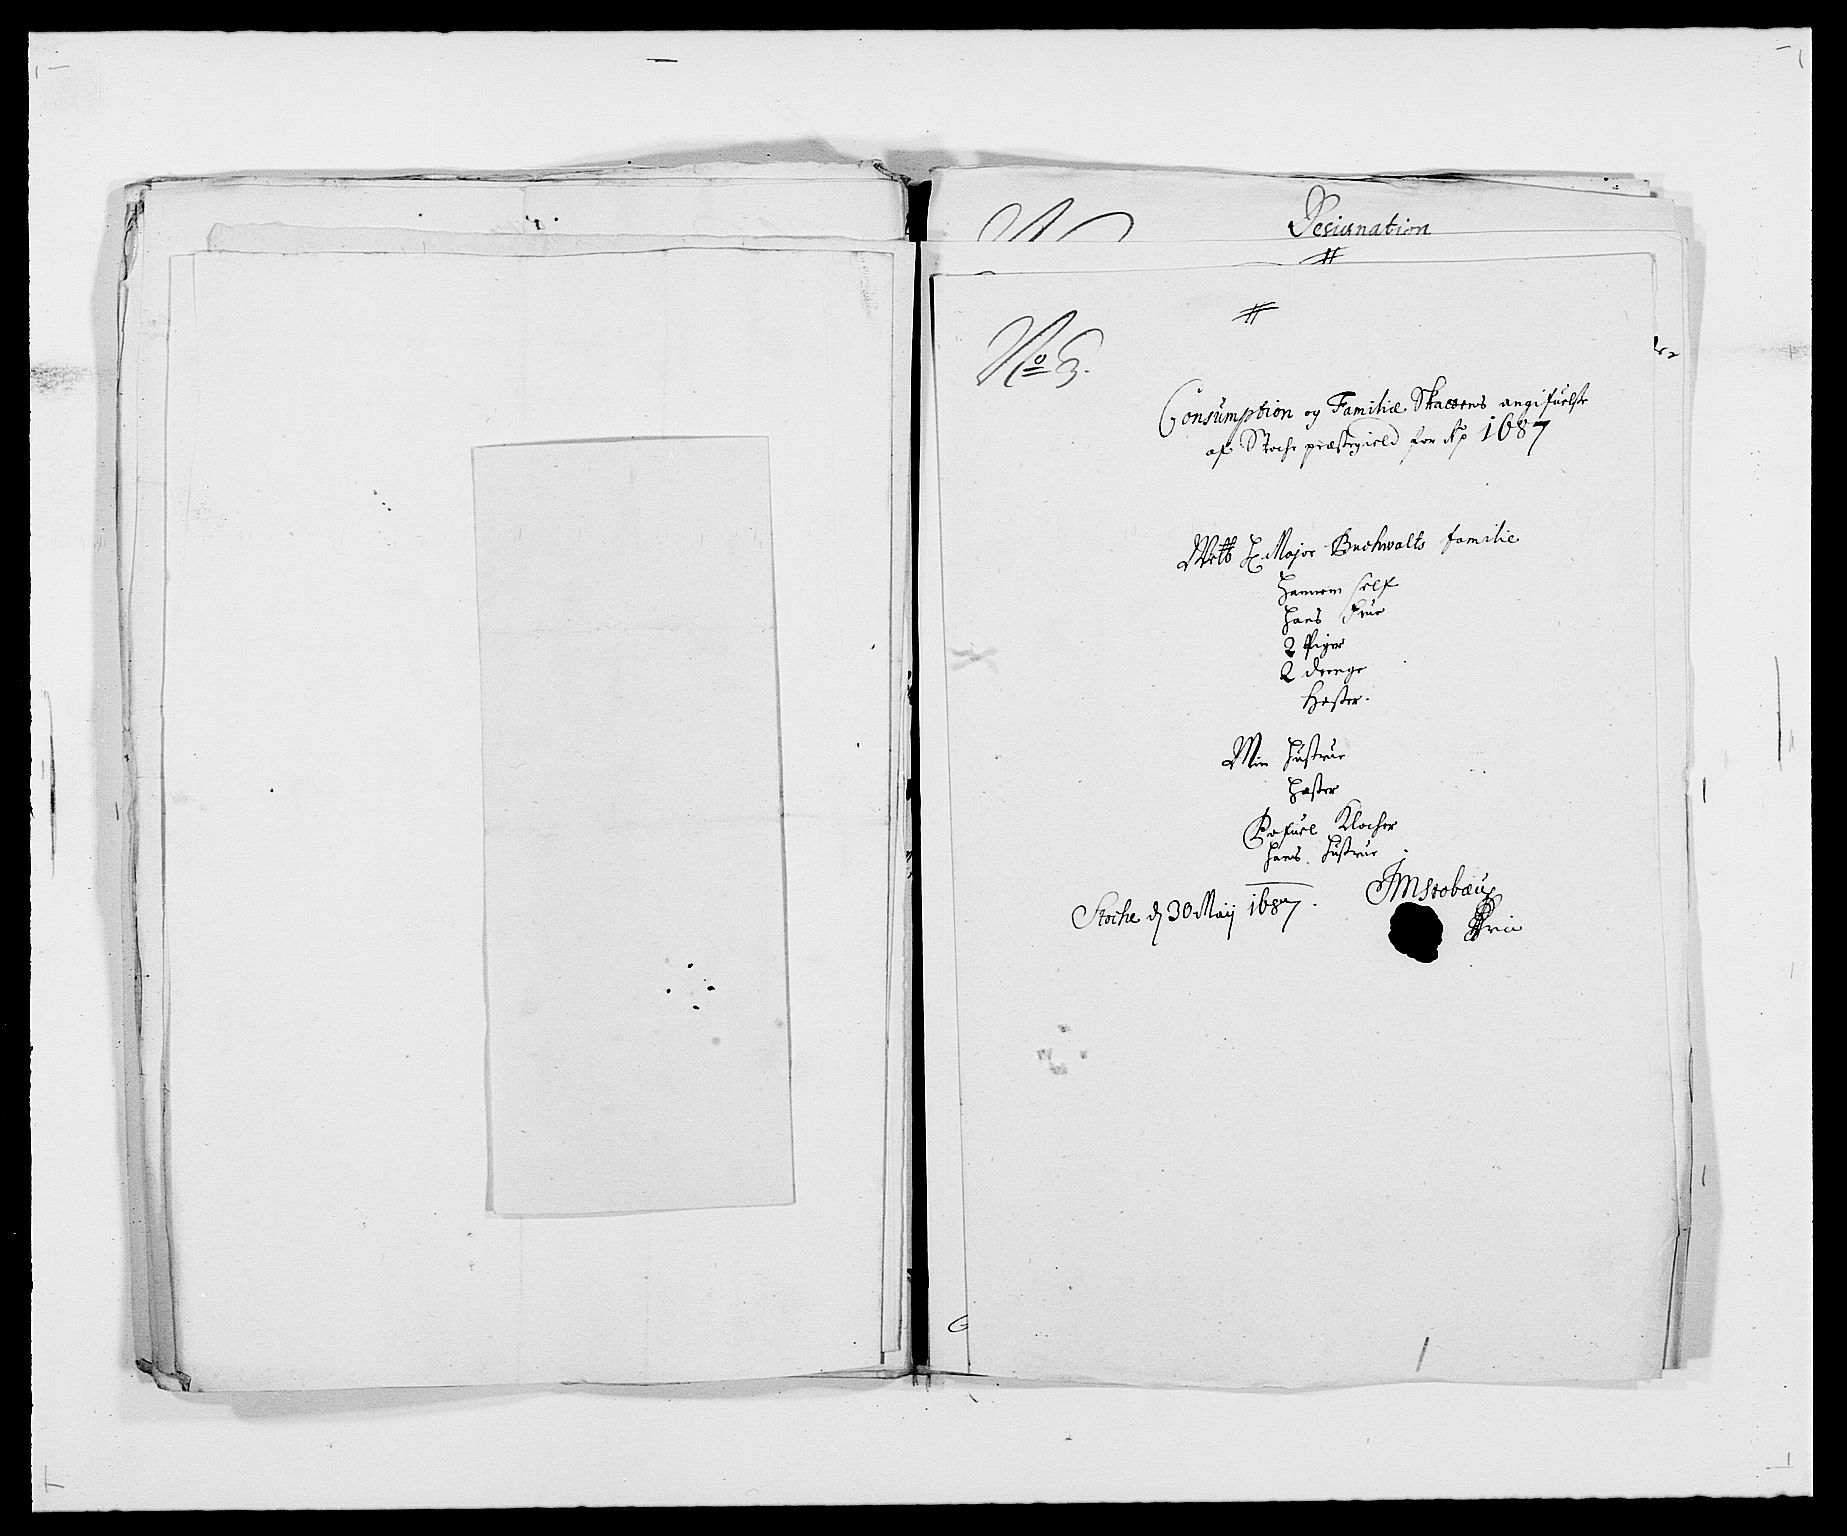 Designation
#
#
No 6.
Consumption og Familie Skattens angifuelse
af Stoche præstegield for Ao 1687
H. Major Buchwalts familie
Hannem self
Hans Frue
2 Piger
2 drenge
Hæster.
Min Hustrue
Hæster
Pofuel Klocher
Hans Hustrue
Stoche d 30 Maij 1687.
JMStobæus